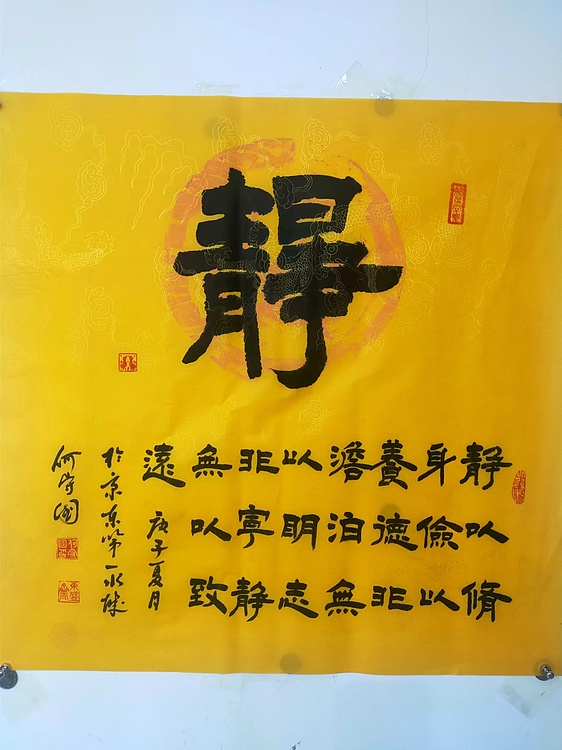 靜
靜以脩
身儉以
養德非
澹泊無
以明志
非寧靜
無以致
遠 庚子夏月
於京东第一水城
何守國